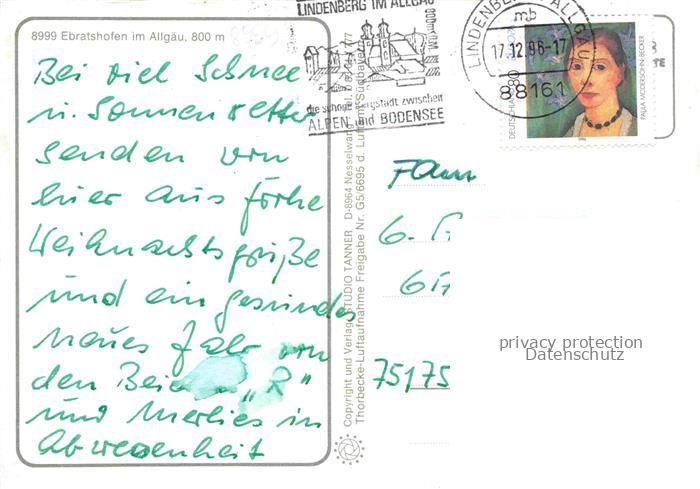 8999 Ebratshofen im Allgäu, 800 m
Bei viel Schnee
u. Sonnenwetter
senden von
hier aus frohe
Weihnachtsgrüße
und ein gesundes
neues Jahr von
den "R"
und Merlies in
Abwesenheit
Copyright und Verlag STUDIO TANNER D-8964 Nesselwang
Thorbecke-Luftaufnahme Freigabe Nr. G5/6695 d. Luftamt Südbayern
LINDENBERG IM ALLGÄU
800m
die schöne Bergstadt zwischen
ALPEN und BODENSEE
LINDENBERG, ALLGÄU
mb
17.12.96-17
88161
DEUTSCHLAND
PAULA MODERSOHN-BECKER
Fam
75175
privacy protection
Datenschutz